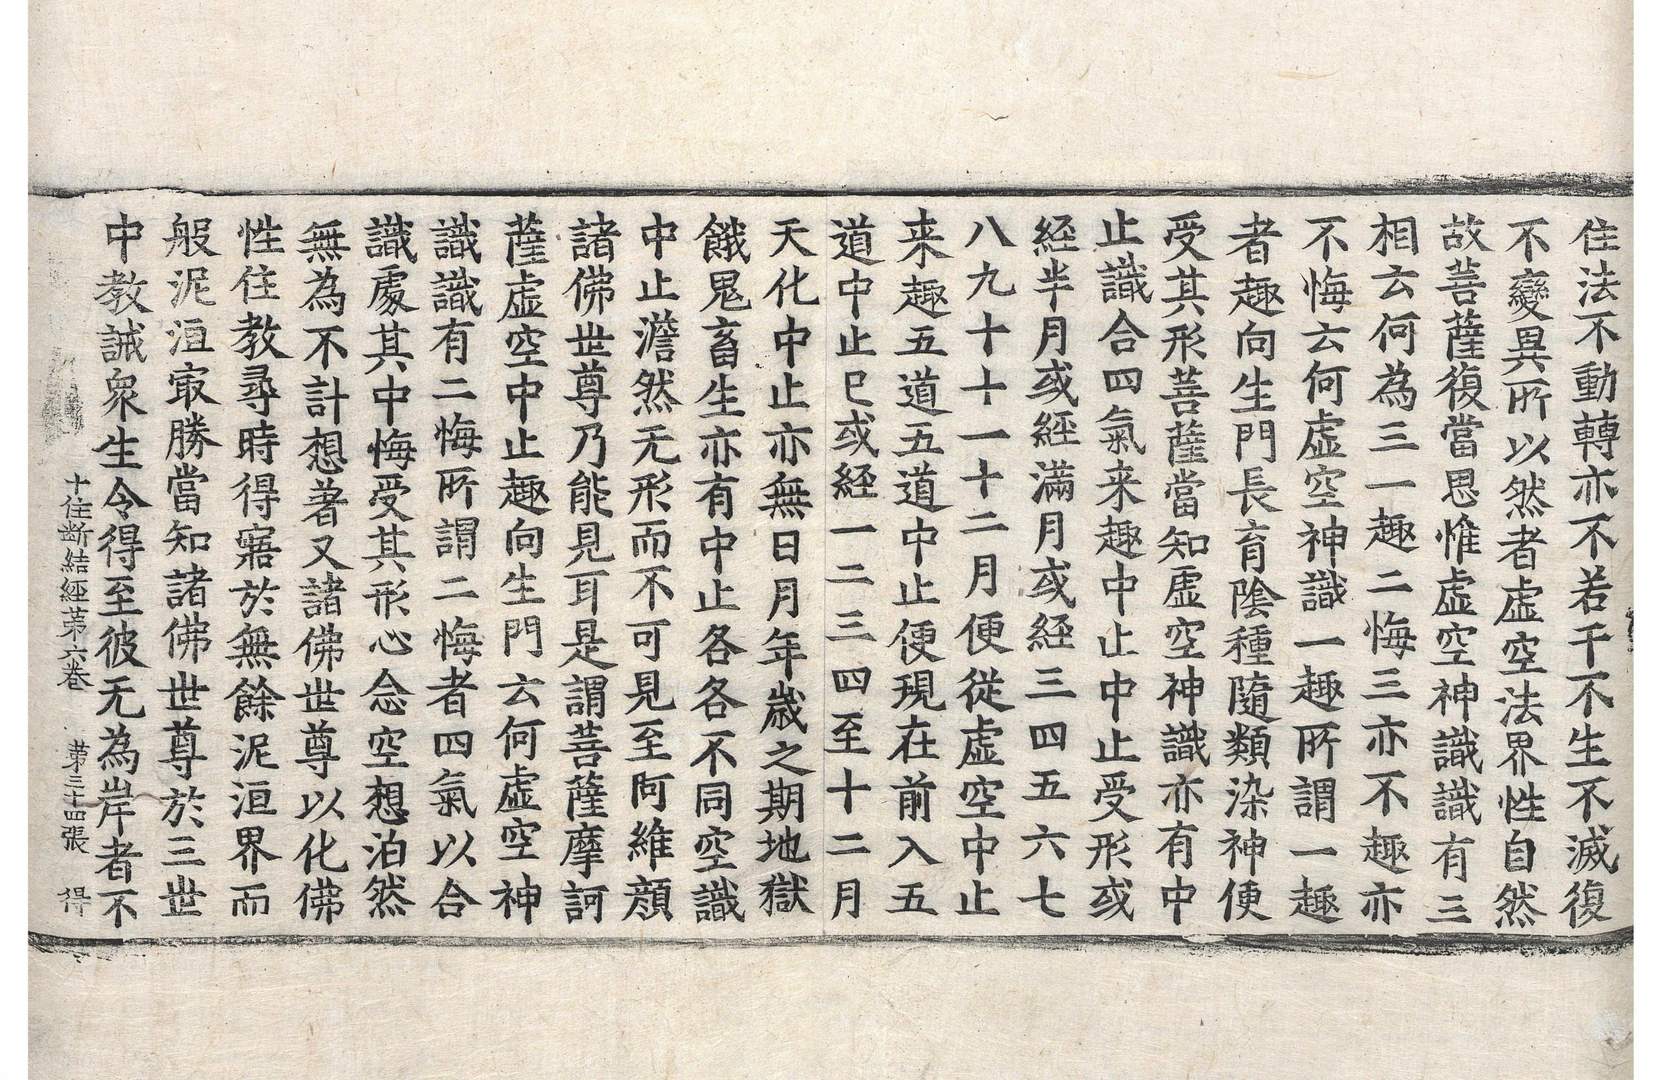 住法不動轉亦不若干不生不滅復
不變異所以然者虛空法界性自然
故菩薩復當思惟虛空神識識有三
相云何為三一趣二悔三亦不趣亦
不悔云何虛空神識一趣所謂一趣
者趣向生門長育陰種隨類染神便
受其形菩薩當知虛空神識亦有中
止識合四氣来趣中止中止受形或
經半月或經滿月或經三四五六七
八九十十一十二月便從虛空中止
来趣五道五道中止便現在前入五
道中止已或經一二三四至十二月
天化中止亦無日月年歲之期地獄
餓鬼畜生亦有中止各各不同空識
中止澹然无形而不可見至阿維顔
諸佛世尊乃能見耳是謂菩薩摩訶
薩虛空中止趣向生門云何虛空神
識識有二悔所謂二悔者四氣以合
識處其中悔受其形心念空想泊然
無為不計想著又諸佛世尊以化佛
性住教尋時得寤於無餘泥洹界而
般泥洹㝡勝當知諸佛世尊於三世
中教誡衆生令得至彼无為岸者不
十住断結經苐六卷 苐三十四張 得